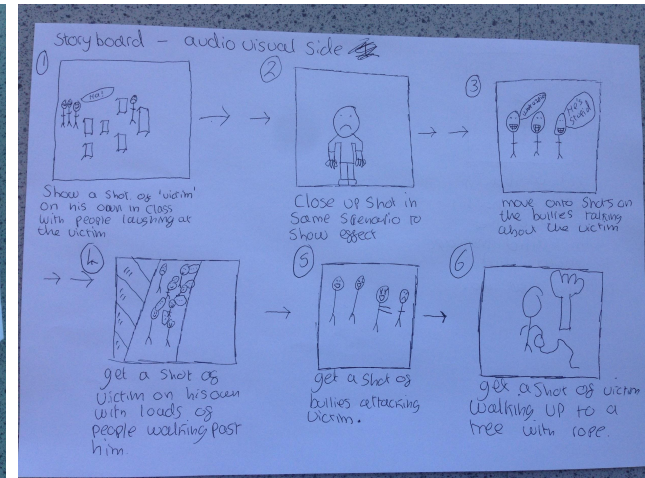 Storyboard - audio visual side
1
Ha!
Show a shot of 'victim'
on his own in class
with people laughing at
the victim
2
Close up shot in
same scenario to
show effect
3
He's
stupid
move onto shots on
the bullies talking
about the victim
4
get a shot of
victim on his own
with loads of
people walking past
him.
5
get a shot of
bullies attacking
victim.
6
get a shot of victim
walking up to a
tree with rope.